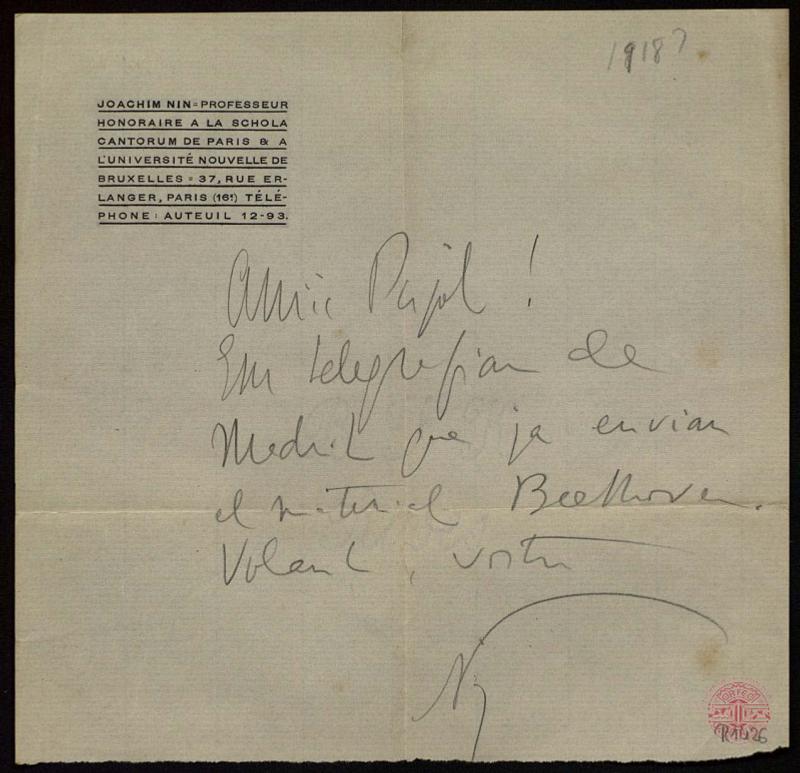 1918?
JOACHIM NIN = PROFESSEUR
HONORAIRE A LA SCHOLA
CANTORUM DE PARIS & A
L'UNIVERSITÉ NOUVELLE DE
BRUXELLES = 37, RUE ER-
LANGER, PARIS (16e) TÉLÉ-
PHONE : AUTEUIL 12-93.
Amic Pujol !
Em telegrafian de
Madrid que ja envian
el material Beethoven.
Volant, vostre
Nin
ORFEO